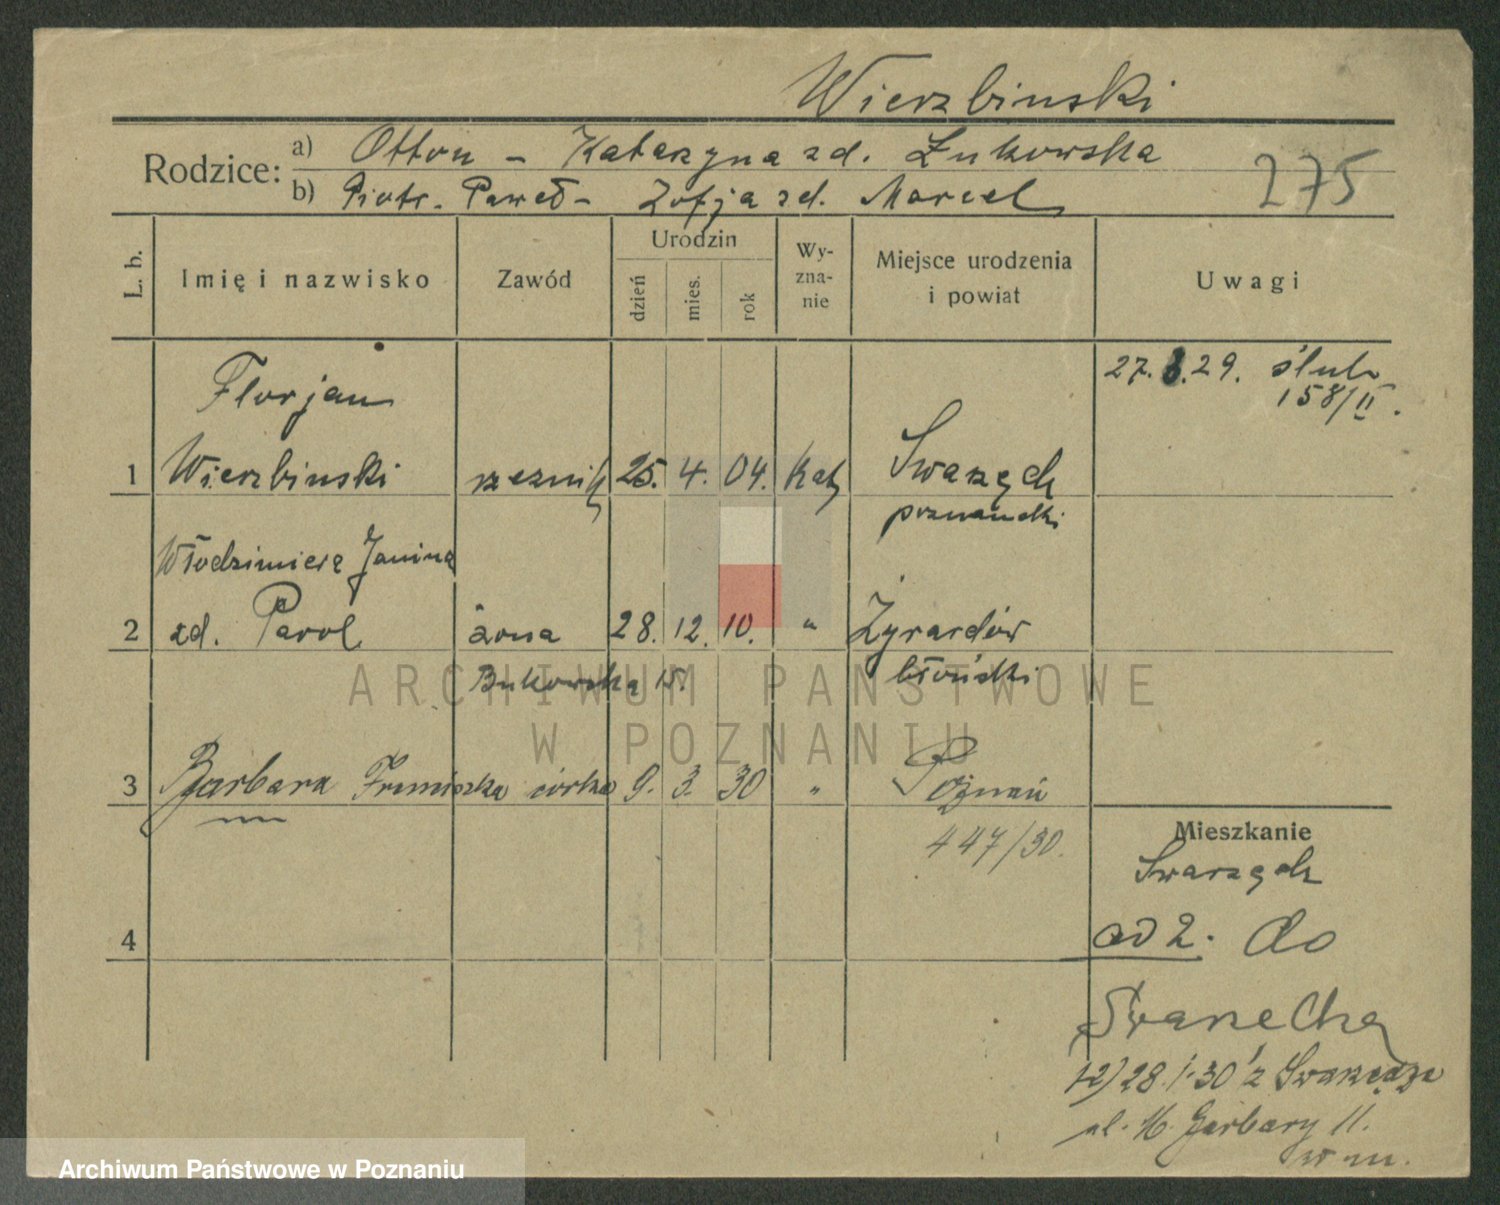 Wierzbinski
Rodzice: a) Otton – Katarzyna zd. Łukowska
b) Piotr-Paweł – Zofja zd. Marcel
275
L. b. Imię i nazwisko Zawód Urodzin dzień mies. rok Wy-zna-nie Miejsce urodzenia i powiat Uwagi
27.8.29. ślub
158/II.
Florjan
1 Wierzbinski rzeznik 25. 4. 04. Kat Swarzędz
poznański
Włodzimiera Janina
2 zd. Parol żona 28. 12. 10. " Żyrardów
Bukowska 15. błoński
3 Barbara córka 9. 3. 30 " Poznań
447/30.
Mieszkanie
Swarzędz
4
ad 2. do
Swarzędza
1-2) 28.1.30 z Swarzędza
ul. W. Garbary 11.
w m.
ARCHIWUM PAŃSTWOWE
W POZNANIU
Archiwum Państwowe w Poznaniu